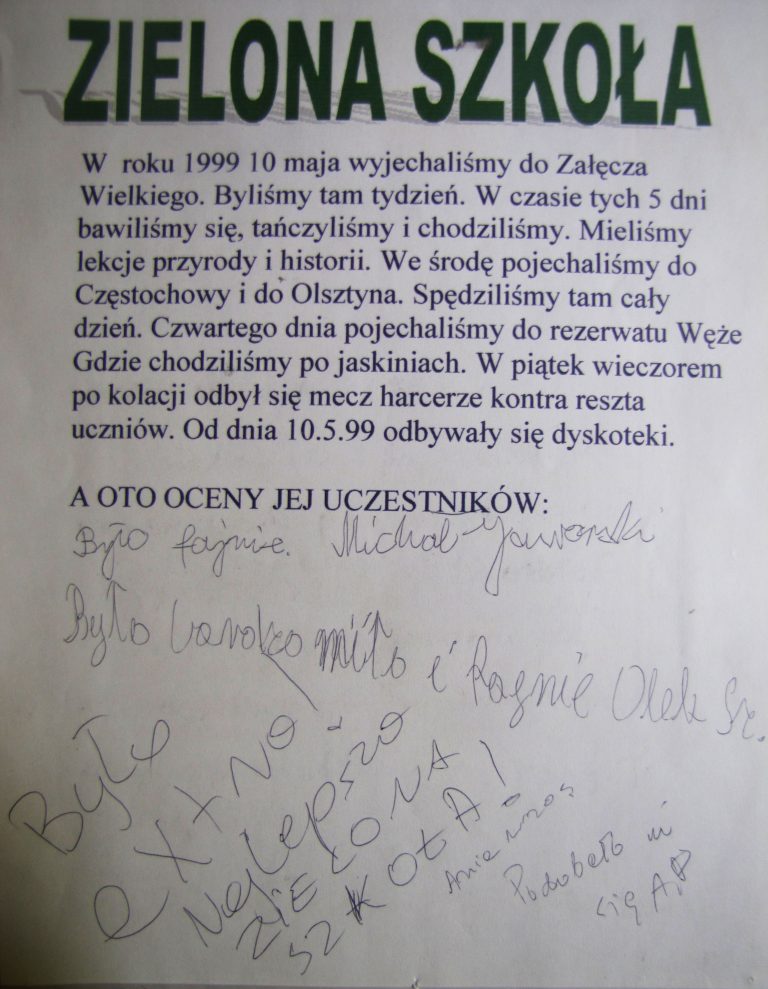 ZIELONA SZKOŁA
W roku 1999 10 maja wyjechaliśmy do Załęcza
Wielkiego. Byliśmy tam tydzień. W czasie tych 5 dni
bawiliśmy się, tańczyliśmy i chodziliśmy. Mieliśmy
lekcje przyrody i historii. We środę pojechaliśmy do
Częstochowy i do Olsztyna. Spędziliśmy tam cały
dzień. Czwartego dnia pojechaliśmy do rezerwatu Węże
Gdzie chodziliśmy po jaskiniach. W piątek wieczorem
po kolacji odbył się mecz harcerze kontra reszta
uczniów. Od dnia 10.5.99 odbywały się dyskoteki.
A OTO OCENY JEJ UCZESTNIKÓW:
Było fajnie. Michał Jaworski
Było bardzo miło i fajnie Olek Sz.
Było
exxno!
Najlepsza
ZIELONA
SZKOŁA!
Ania
Podobało mi
się A.P